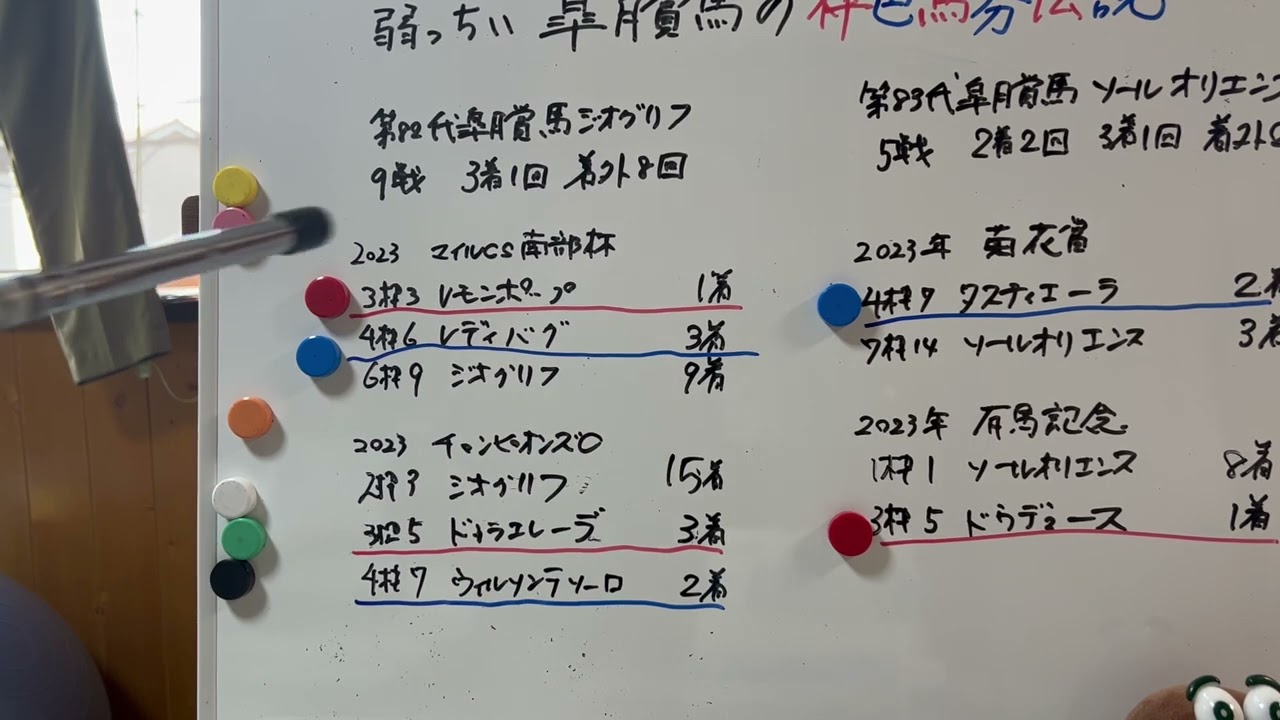 弱っちい 皐月賞馬の枠色馬券伝説
第82代皐月賞馬ジオグリフ
9戦 3着1回 着外8回
2023 マイルCS南部杯
3枠3 レモンポップ 1着
4枠6 レディバグ 3着
6枠9 ジオグリフ 9着
2023 チャンピオンズC
2枠3 ジオグリフ 15着
3枠5 ドゥラエレーデ 3着
4枠7 ウィルソンテソーロ 2着
第83代皐月賞馬 ソールオリエンス
5戦 2着2回 3着1回 着外2
2023年 菊花賞
4枠7 タスティエーラ 2着
7枠14 ソールオリエンス 3着
2023年 有馬記念
1枠1 ソールオリエンス 8着
3枠5 ドウデュース 1着